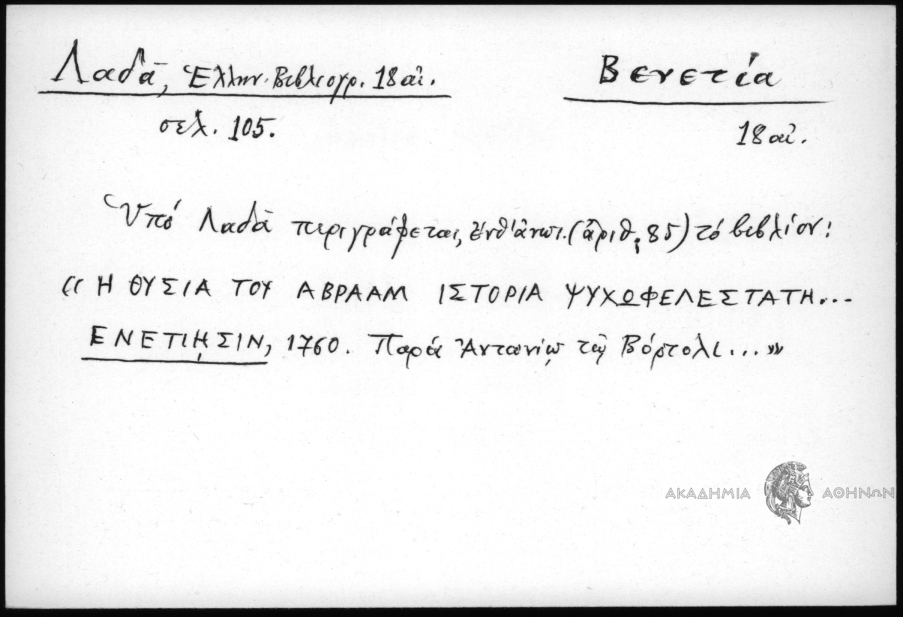 Λαδᾶ, Ἑλλην. Βιβλιογρ. 18 αἰ.
Βενετία
σελ. 105.
18 αἰ.
Ὑπό Λαδᾶ περιγράφεται, ἐνθ' ἀνωτ. (ἀριθ. 85) τό βιβλίον:
«Η ΘΥΣΙΑ ΤΟΥ ΑΒΡΑΑΜ ΙΣΤΟΡΙΑ ΨΥΧΩΦΕΛΕΣΤΑΤΗ...
ΕΝΕΤΙΗΣΙΝ, 1760. Παρά Ἀντωνίῳ τῷ Βόρτολι...»
ΑΚΑΔΗΜΙΑ ΑΘΗΝΩΝ